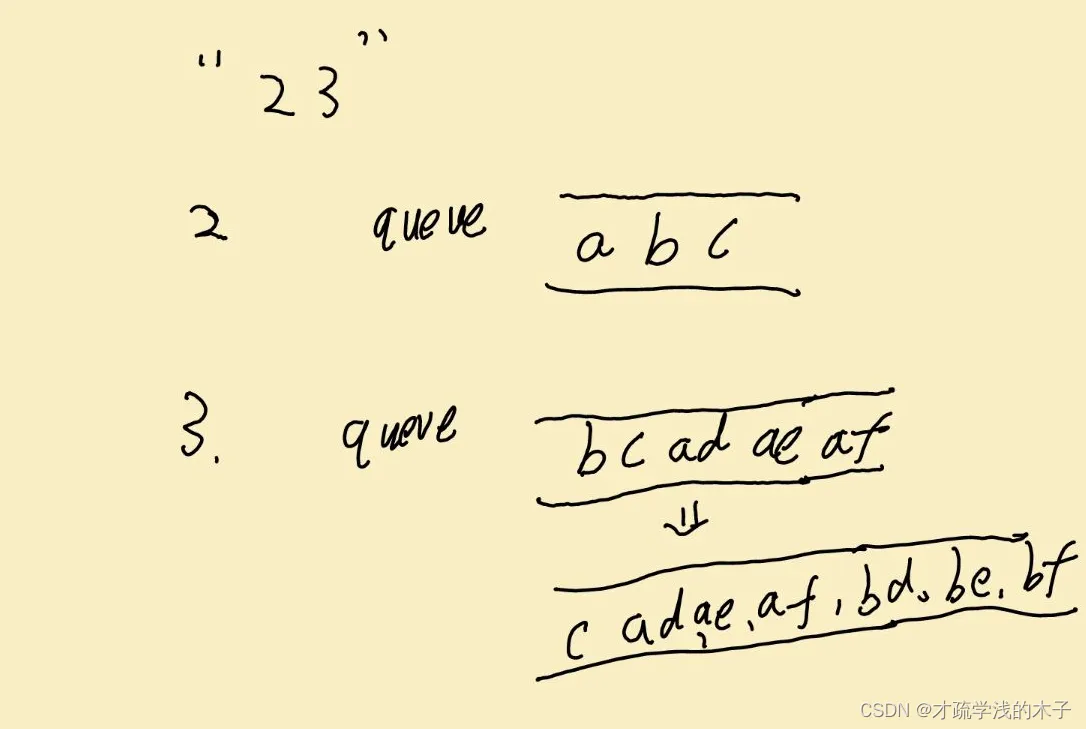 "23"
2 queue a b c
3. queue b c ad ae af
⇓
c ad, ae, af, bd, be, bf
CSDN @才疏学浅的木子